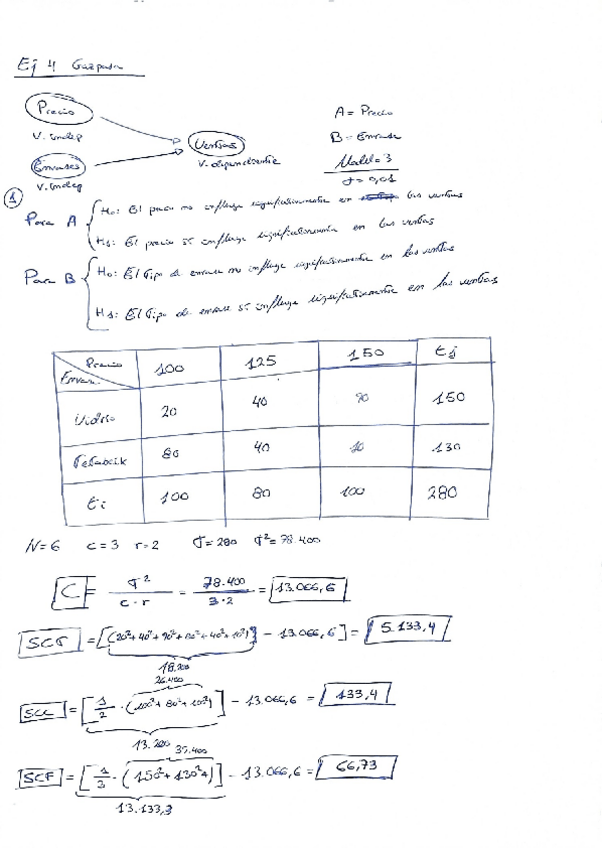 Ej 4 Gazpacho
Precio
V. indep
Envases
V. indep
Ventas
V. dependiente
A = Precio
B = Envase
Model = 3
1
Para A
H0: El precio no influye significativamente en las ventas
H1: El precio sí influye significativamente en las ventas
Para B
H0: El Tipo de envase no influye significativamente en las ventas
H1: El Tipo de envase sí influye significativamente en las ventas
Precio 100 125 150 tj
Envas.
Vidrio 20 40 90 150
Tetabrik 80 40 10 130
ti 100 80 100 280
N=6 c=3 r=2 T=280 T²=78.400
C = T² / c·r = 78.400 / 3·2 = 13.066,6
SCT = [(20²+40²+90²+80²+40²+10²)] - 13.066,6] = 5.133,4
18.200
26.400
SCC = [1/2 · (100²+80²+100²)] - 13.066,6 = 133,4
13.200
39.400
SCF = [1/3 · (150²+130²+)] - 13.066,6 = 66,73
13.133,3